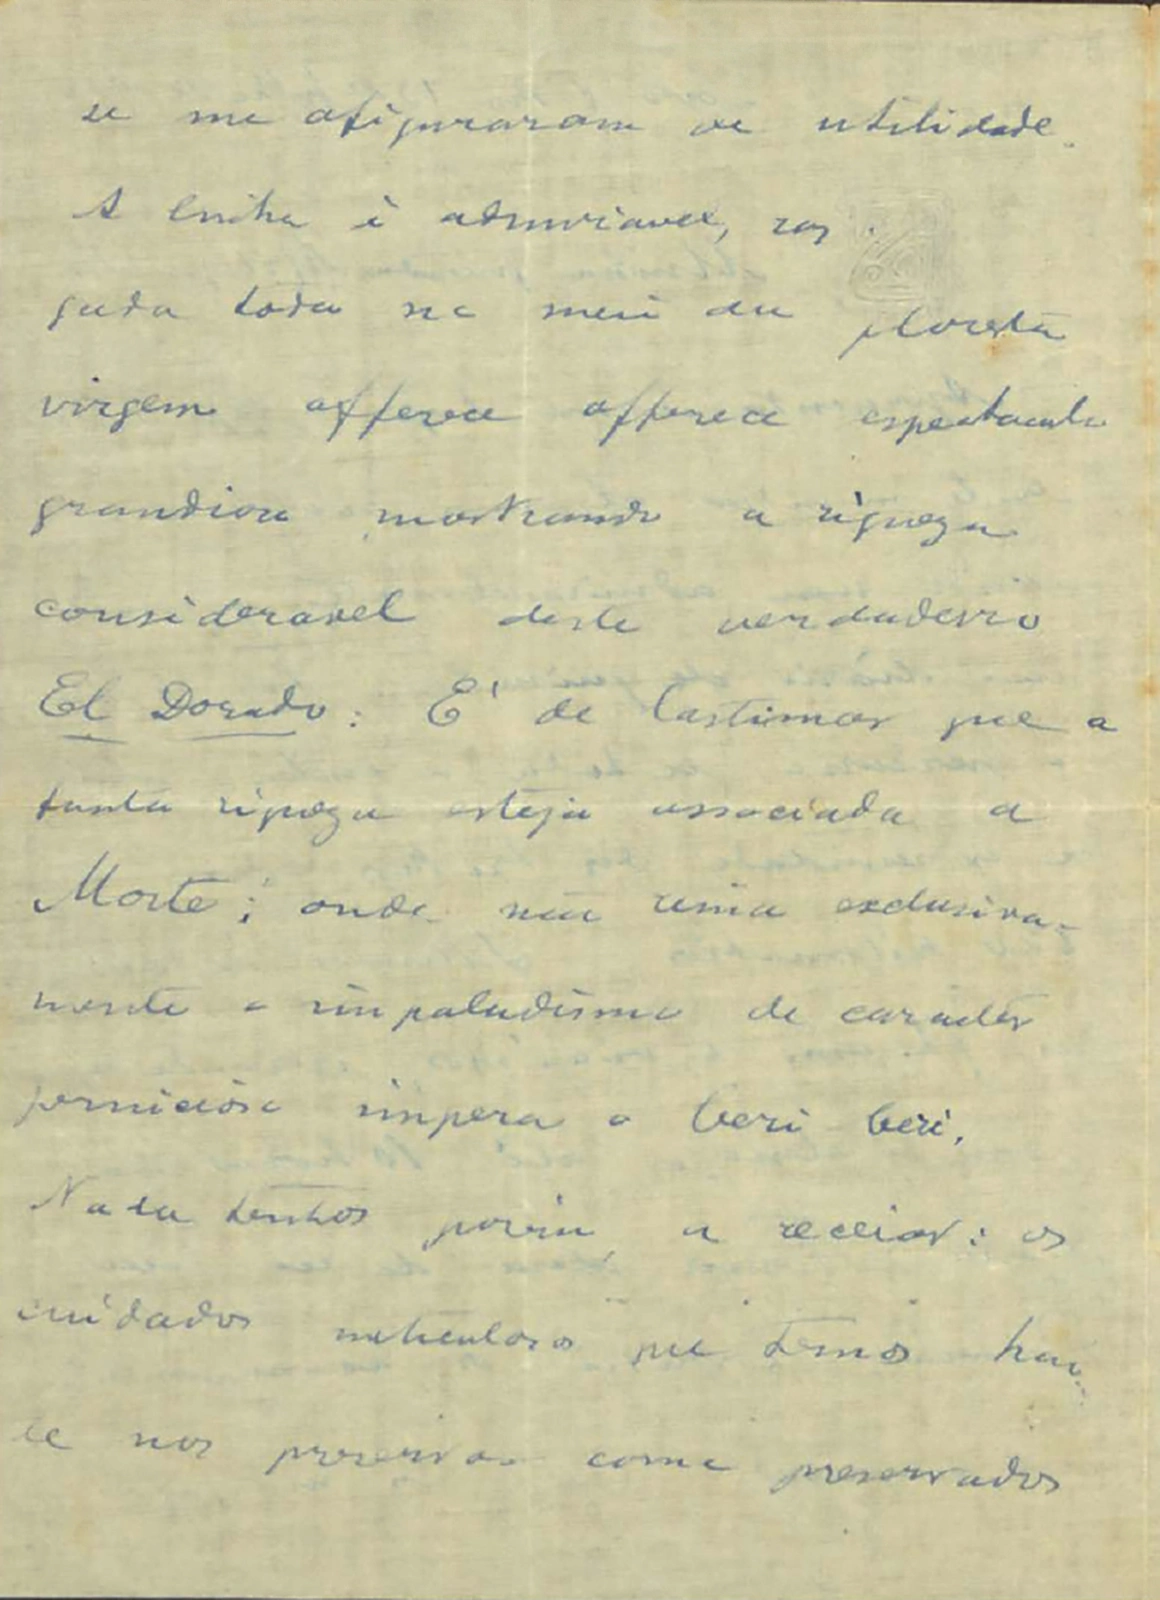 se me afiguraram de utilidade.
A linha é admiravel, ras-
gada toda no meio da floresta
virgem offerece offerece espectaculo
grandioso mostrando a riqueza
consideravel deste verdadeiro
El Dorado: E' de lastimar que a
tanta riqueza esteja associada a
Morte; onde não reina exclusiva-
mente o impaludismo de caracter
pernicioso impera o beri beri.
Nada temos porém a receiar: os
cuidados meticulosos que temos hão
de nos preservar como preservados